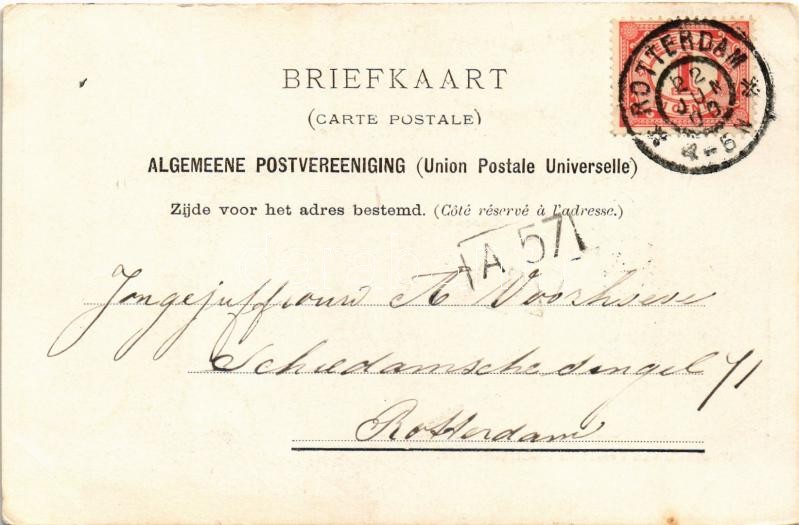 BRIEFKAART
(CARTE POSTALE)
ALGEMEENE POSTVEREENIGING (Union Postale Universelle)
Zijde voor het adres bestemd. (Côté réservé à l'adresse.)
ROTTERDAM
22
JUN
4-5N
1
A 571
Jongejuffrouw A Voorhoeve
Schiedamschesingel 71
Rotterdam